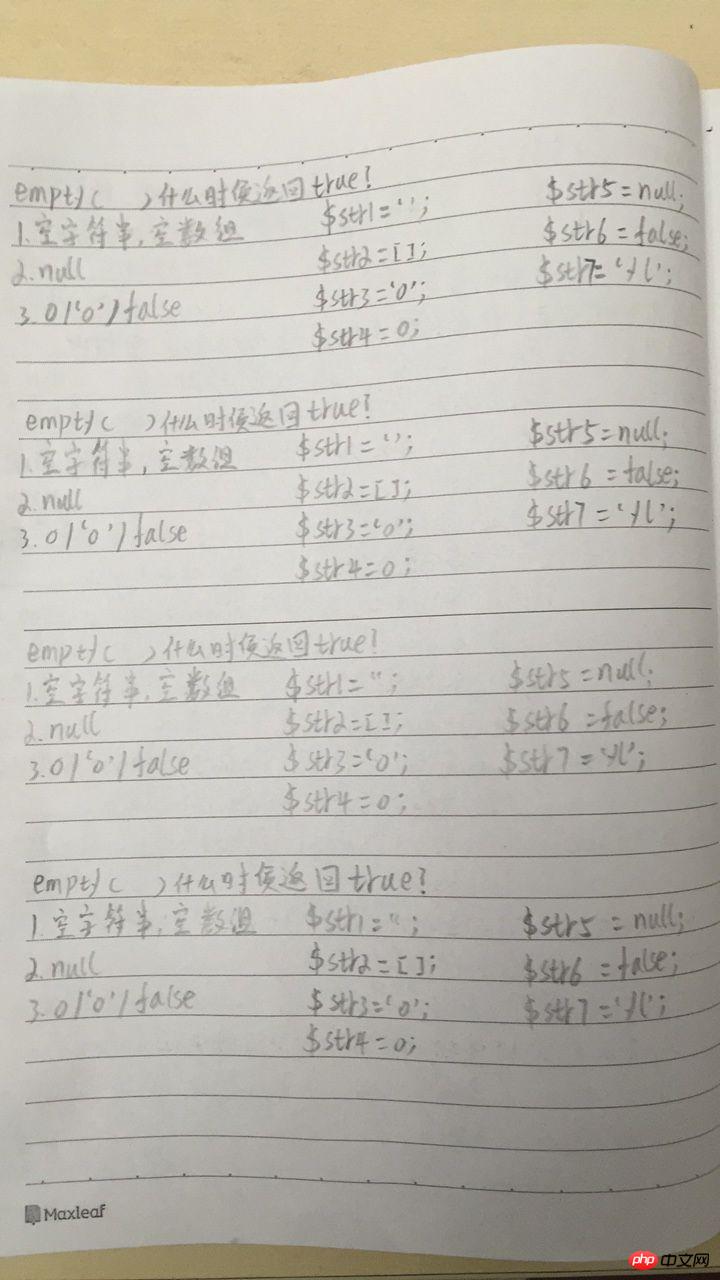 empty( )什么时候返回true?
1.空字符串,空数组 $str1='';  $str5=null;
2.null $str2=[]; $str6=false;
3.0/'0'/false $str3='0'; $str7='yl';
$str4=0;
empty( )什么时候返回true?
1.空字符串,空数组 $str1=''; $str5=null;
2.null $str2=[]; $str6=false;
3.0/'0'/false $str3='0'; $str7='yl';
$str4=0;
empty( )什么时候返回true?
1.空字符串,空数组 $str1=''; $str5=null;
2.null $str2=[]; $str6=false;
3.0/'0'/false $str3='0'; $str7='yl';
$str4=0;
empty( )什么时候返回true?
1.空字符串,空数组 $str1=''; $str5=null;
2.null $str2=[]; $str6=false;
3.0/'0'/false $str3='0'; $str7='yl';
$str4=0;
Maxleaf
php 中文网